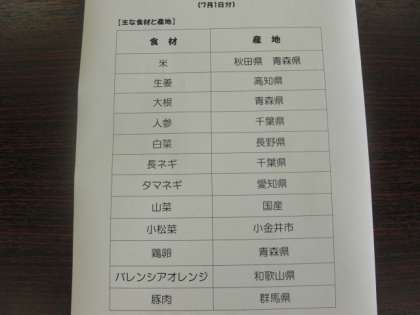 (7月1日分)
[主な食材と産地]
食 材 産 地
米 秋田県 青森県
生姜 高知県
大根 青森県
人参 千葉県
白菜 長野県
長ネギ 千葉県
タマネギ 愛知県
山菜 国産
小松菜 小金井市
鶏卵 青森県
バレンシアオレンジ 和歌山県
豚肉 群馬県